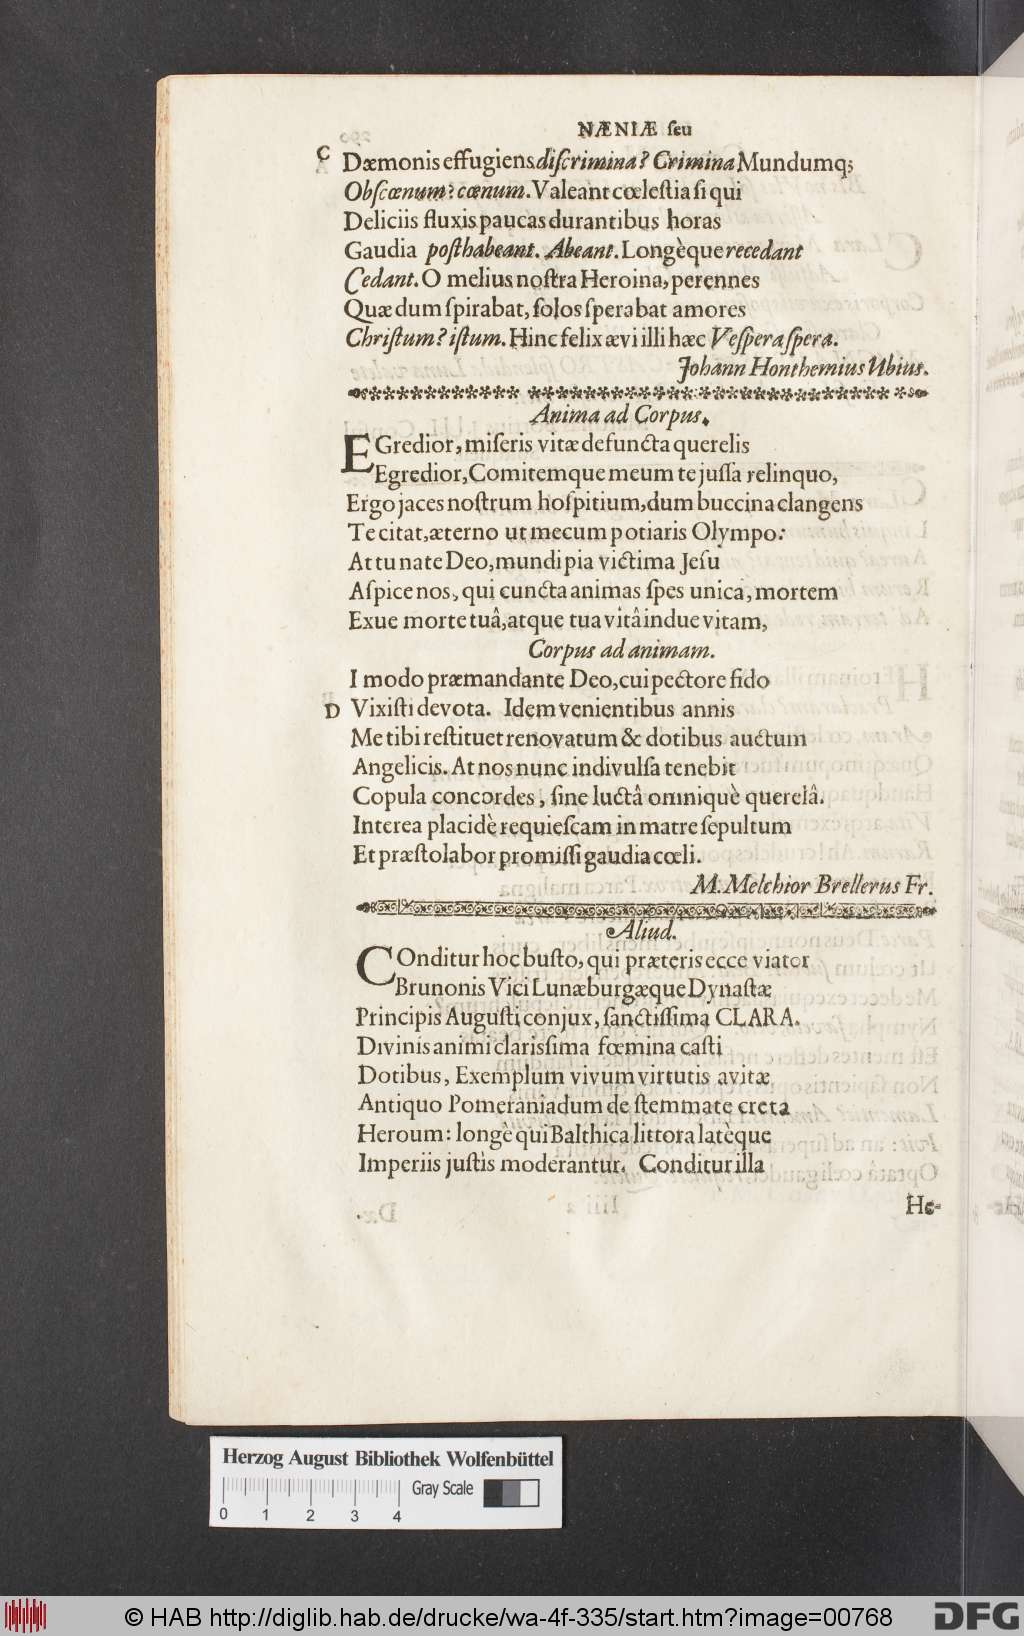 NÆNIÆ ſeu
C Dæmonis effugiens diſcrimina? Crimina Mundumq;
Obſcœnum? cœnum. Valeant cœleſtia ſi qui
Deliciis fluxis paucas durantibus horas
Gaudia poſthabeant. Abeant. Longèque recedant
Cedant. O melius noſtra Heroina, perennes
Quæ dum ſpirabat, ſolos ſperabat amores
Chriſtum? iſtum. Hinc felix ævi illi hæc Veſpera ſpera.
Johann Honthemius Ubius.
Anima ad Corpus.
EGredior, miſeris vitæ defuncta querelis
Egredior, Comitemque meum te juſſa relinquo,
Ergo jaces noſtrum hoſpitium, dum buccina clangens
Te citat, æterno ut mecum potiaris Olympo:
At tu nate Deo, mundi pia victima Jeſu
Aſpice nos, qui cuncta animas ſpes unica, mortem
Exue morte tuâ, atque tua vitâ indue vitam,
Corpus ad animam.
I modo præmandante Deo, cui pectore fido
D Vixiſti devota. Idem venientibus annis
Me tibi reſtituet renovatum & dotibus auctum
Angelicis. At nos nunc indivulſa tenebit
Copula concordes, ſine luctâ omniquè querelâ.
Interea placidè requieſcam in matre ſepultum
Et præſtolabor promiſſi gaudia cœli.
M. Melchior Brellerus Fr.
Aliud.
COnditur hoc buſto, qui præteris ecce viator
Brunonis Vici Lunæburgæque Dynaſtæ
Principis Auguſti conjux, ſanctiſſima CLARA.
Divinis animi clarisſima fœmina caſti
Dotibus, Exemplum vivum virtutis avitæ
Antiquo Pomeraniadum de ſtemmate creta
Heroum: longè qui Balthica littora latèque
Imperiis juſtis moderantur. Conditur illa
He-
Herzog August Bibliothek Wolfenbüttel
Gray Scale
0 1 2 3 4
© HAB http://diglib.hab.de/drucke/wa-4f-335/start.htm?image=00768
DFG